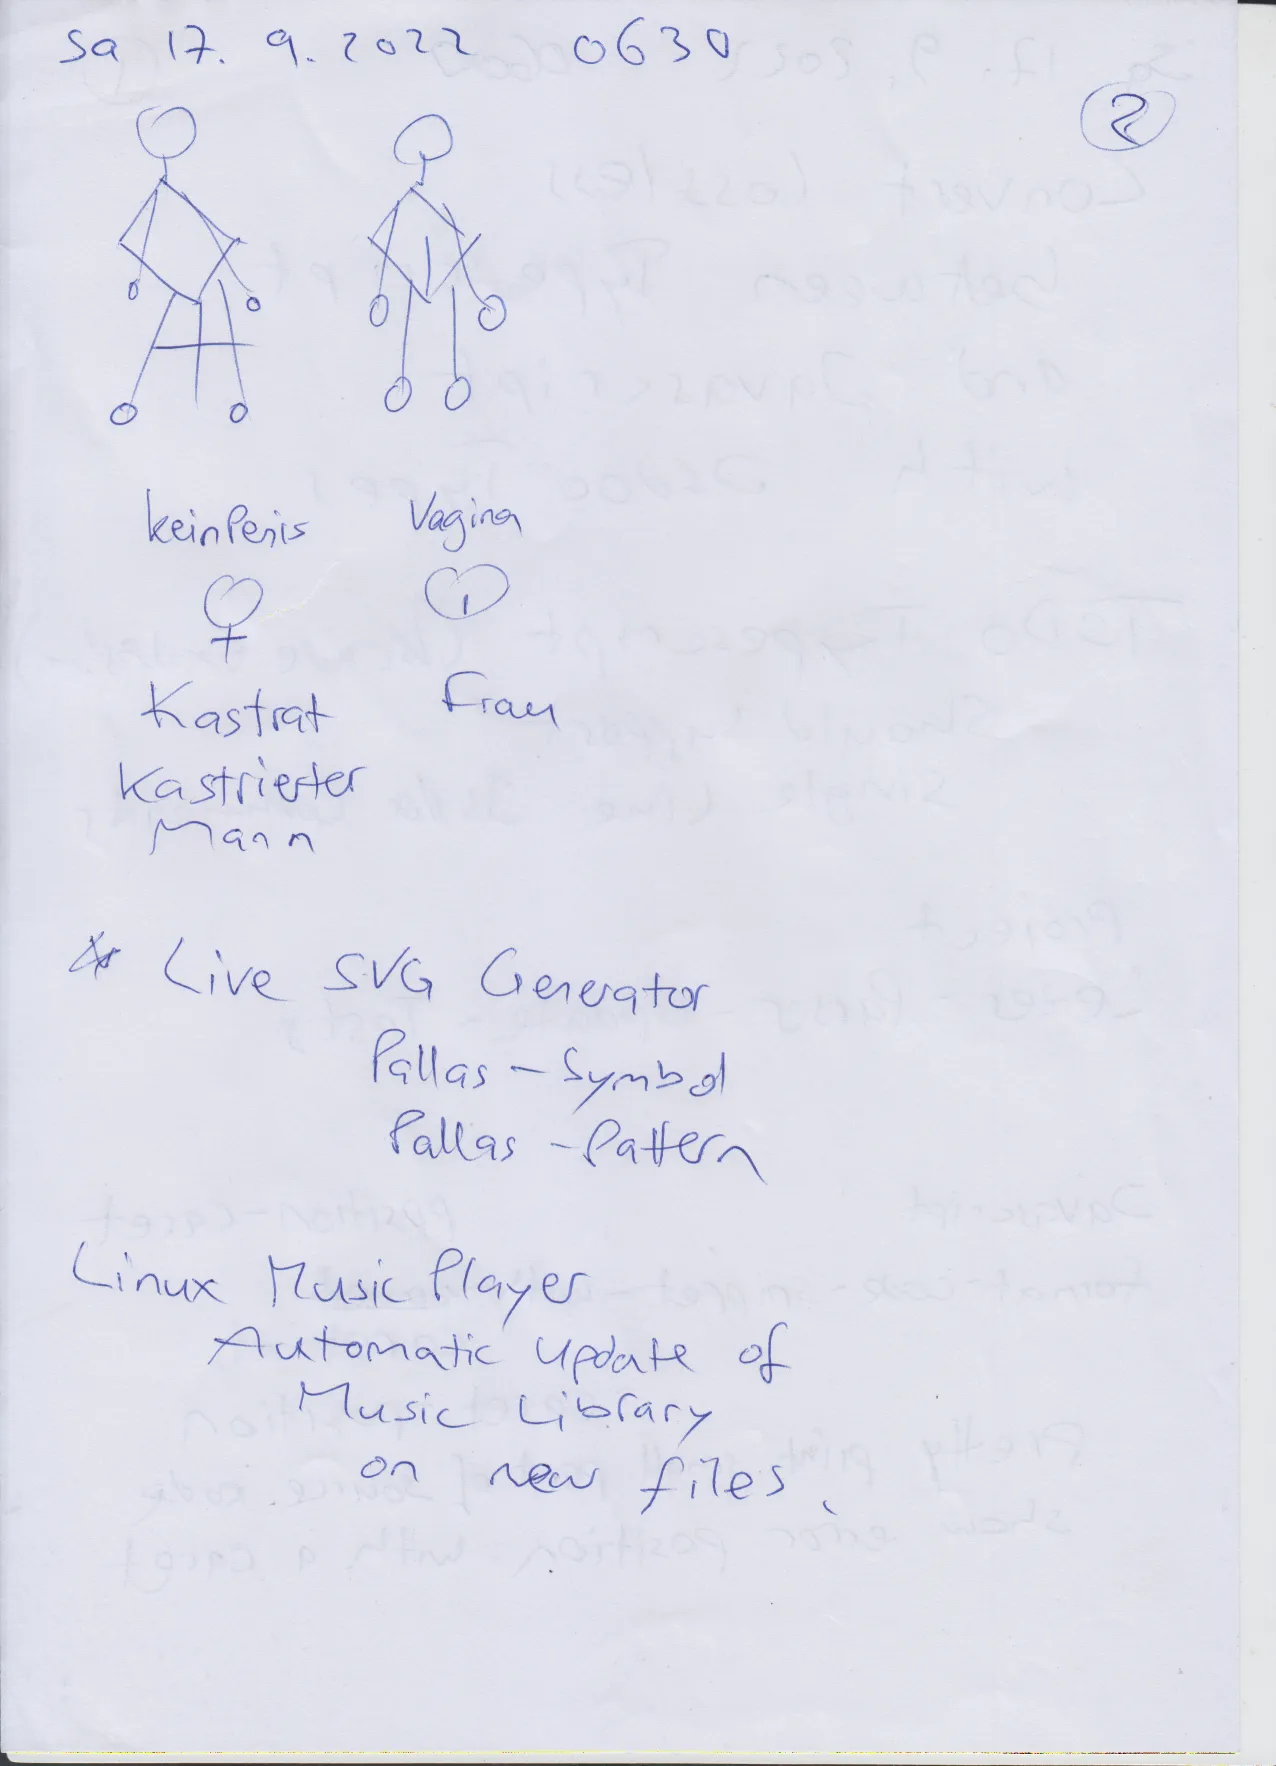 Sa 17. 9. 2022 0630
2
kein Penis Vagina
Kastrat Frau
Kastrierter
Mann
* Live SVG Generator
Pallas - Symbol
Pallas - Pattern
Linux Music Player
Automatic update of
Music Library
on new files.